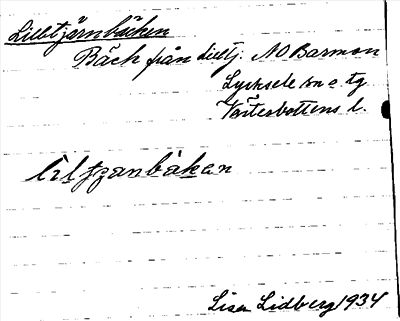 Lilltjärnbäcken
Bäck från Lilltj. NO Barmon
Lycksele sn o tg
Västerbottens l.
liltjzanbäkan
Lisa Lidberg 1934